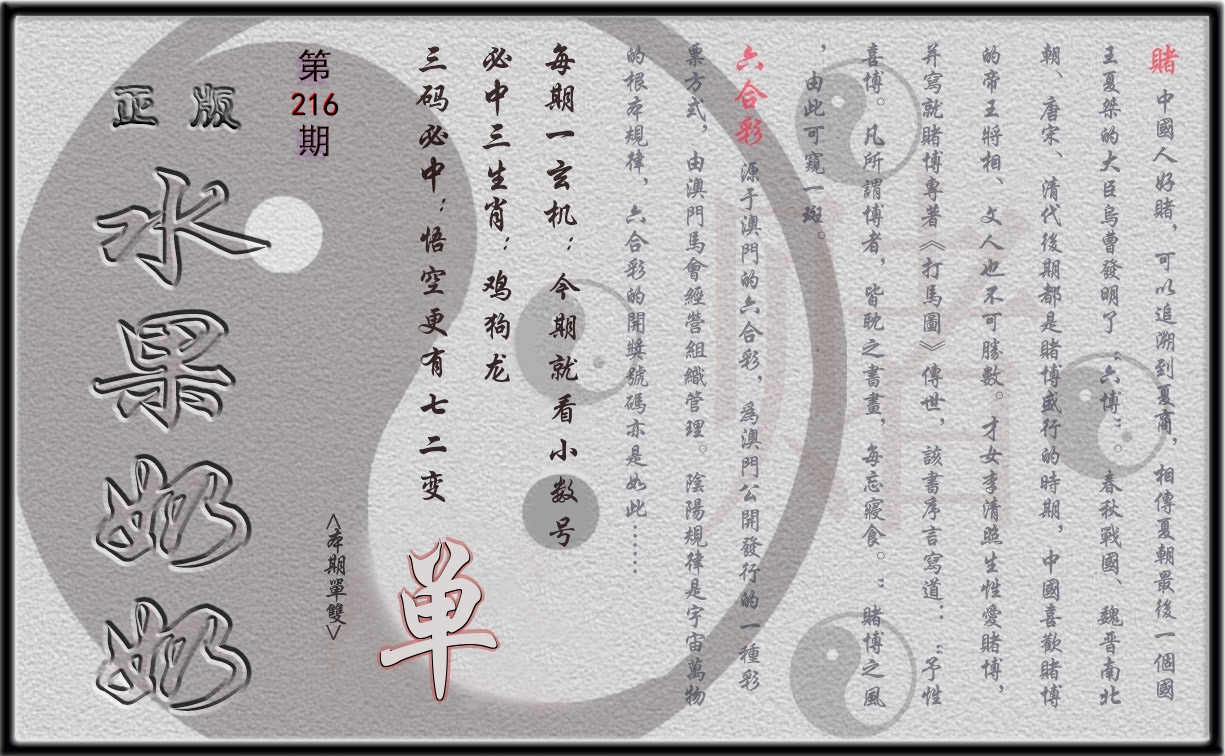 賭 中國人好賭，可以追溯到夏商，相傳夏朝最後一個國
王夏桀的大臣烏曹發明了“六博”。春秋戰國、魏晉南北
朝、唐宋、清代後期都是賭博盛行的時期，中國喜歡賭博
的帝王將相、文人也不可勝數。才女李清照生性愛賭博，
并寫就賭博專著《打馬圖》傳世，該書序言寫道：“予性
喜博。凡所謂博者，皆耽之書畫，每忘寢食。”賭博之風
，由此可窺一斑。
六合彩 源于澳門的六合彩，為澳門公開發行的一種彩
票方式，由澳門馬會經營組織管理。陰陽規律是宇宙萬物
的根本規律，六合彩的開獎號碼亦是如此……
每期一玄机：今期就看小数号
必中三生肖：鸡狗龙
三码必中：悟空更有七二变
单
<本期單雙>
第
216
期
正 版
水果奶奶
賭